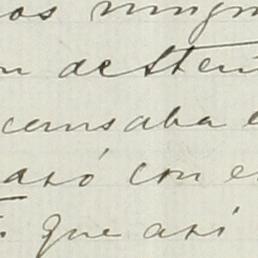 os ningu
n desterr
censaba e
asó con e
que así